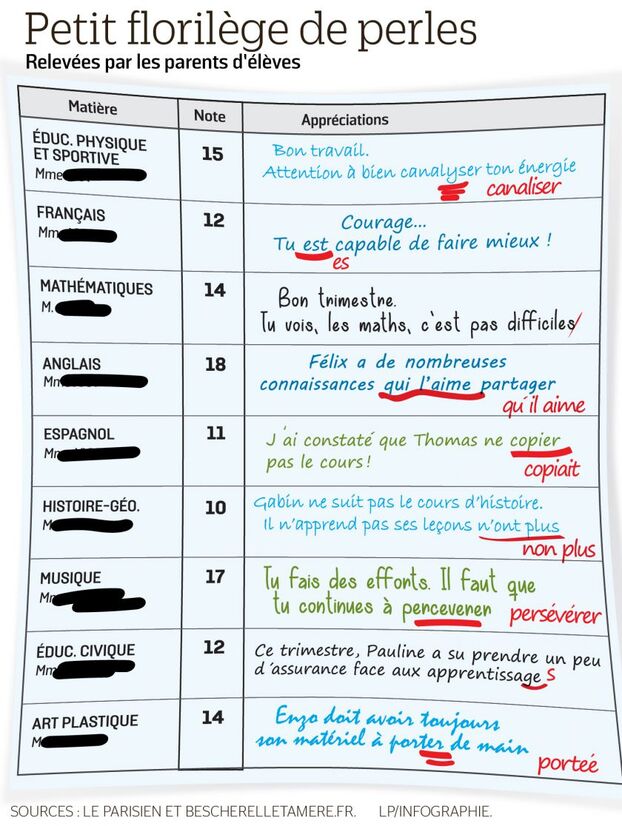 Petit florilège de perles
Relevées par les parents d'élèves
Matière
Note
Appréciations
ÉDUC. PHYSIQUE
ET SPORTIVE
Mme
15
Bon travail.
Attention à bien canalyser ton énergie
canaliser
FRANÇAIS
12
Courage...
Tu est capable de faire mieux !
es
MATHÉMATIQUES
M.
14
Bon trimestre.
Tu vois, les maths, c'est pas difficiles
ANGLAIS
18
Félix a de nombreuses
connaissances qui l'aime partager
qu'il aime
ESPAGNOL
11
J'ai constaté que Thomas ne copier
pas le cours !
copiait
HISTOIRE-GÉO.
10
Gabin ne suit pas le cours d'histoire.
Il n'apprend pas ses leçons n'ont plus
non plus
MUSIQUE
17
Tu fais des efforts. Il faut que
tu continues à perceverer
persévérer
ÉDUC. CIVIQUE
12
Ce trimestre, Pauline a su prendre un peu
d'assurance face aux apprentissage s
ART PLASTIQUE
14
Enzo doit avoir toujours
son matériel à porter de main
porteé
SOURCES : LE PARISIEN ET BESCHERELLETAMERE.FR. LP/INFOGRAPHIE.